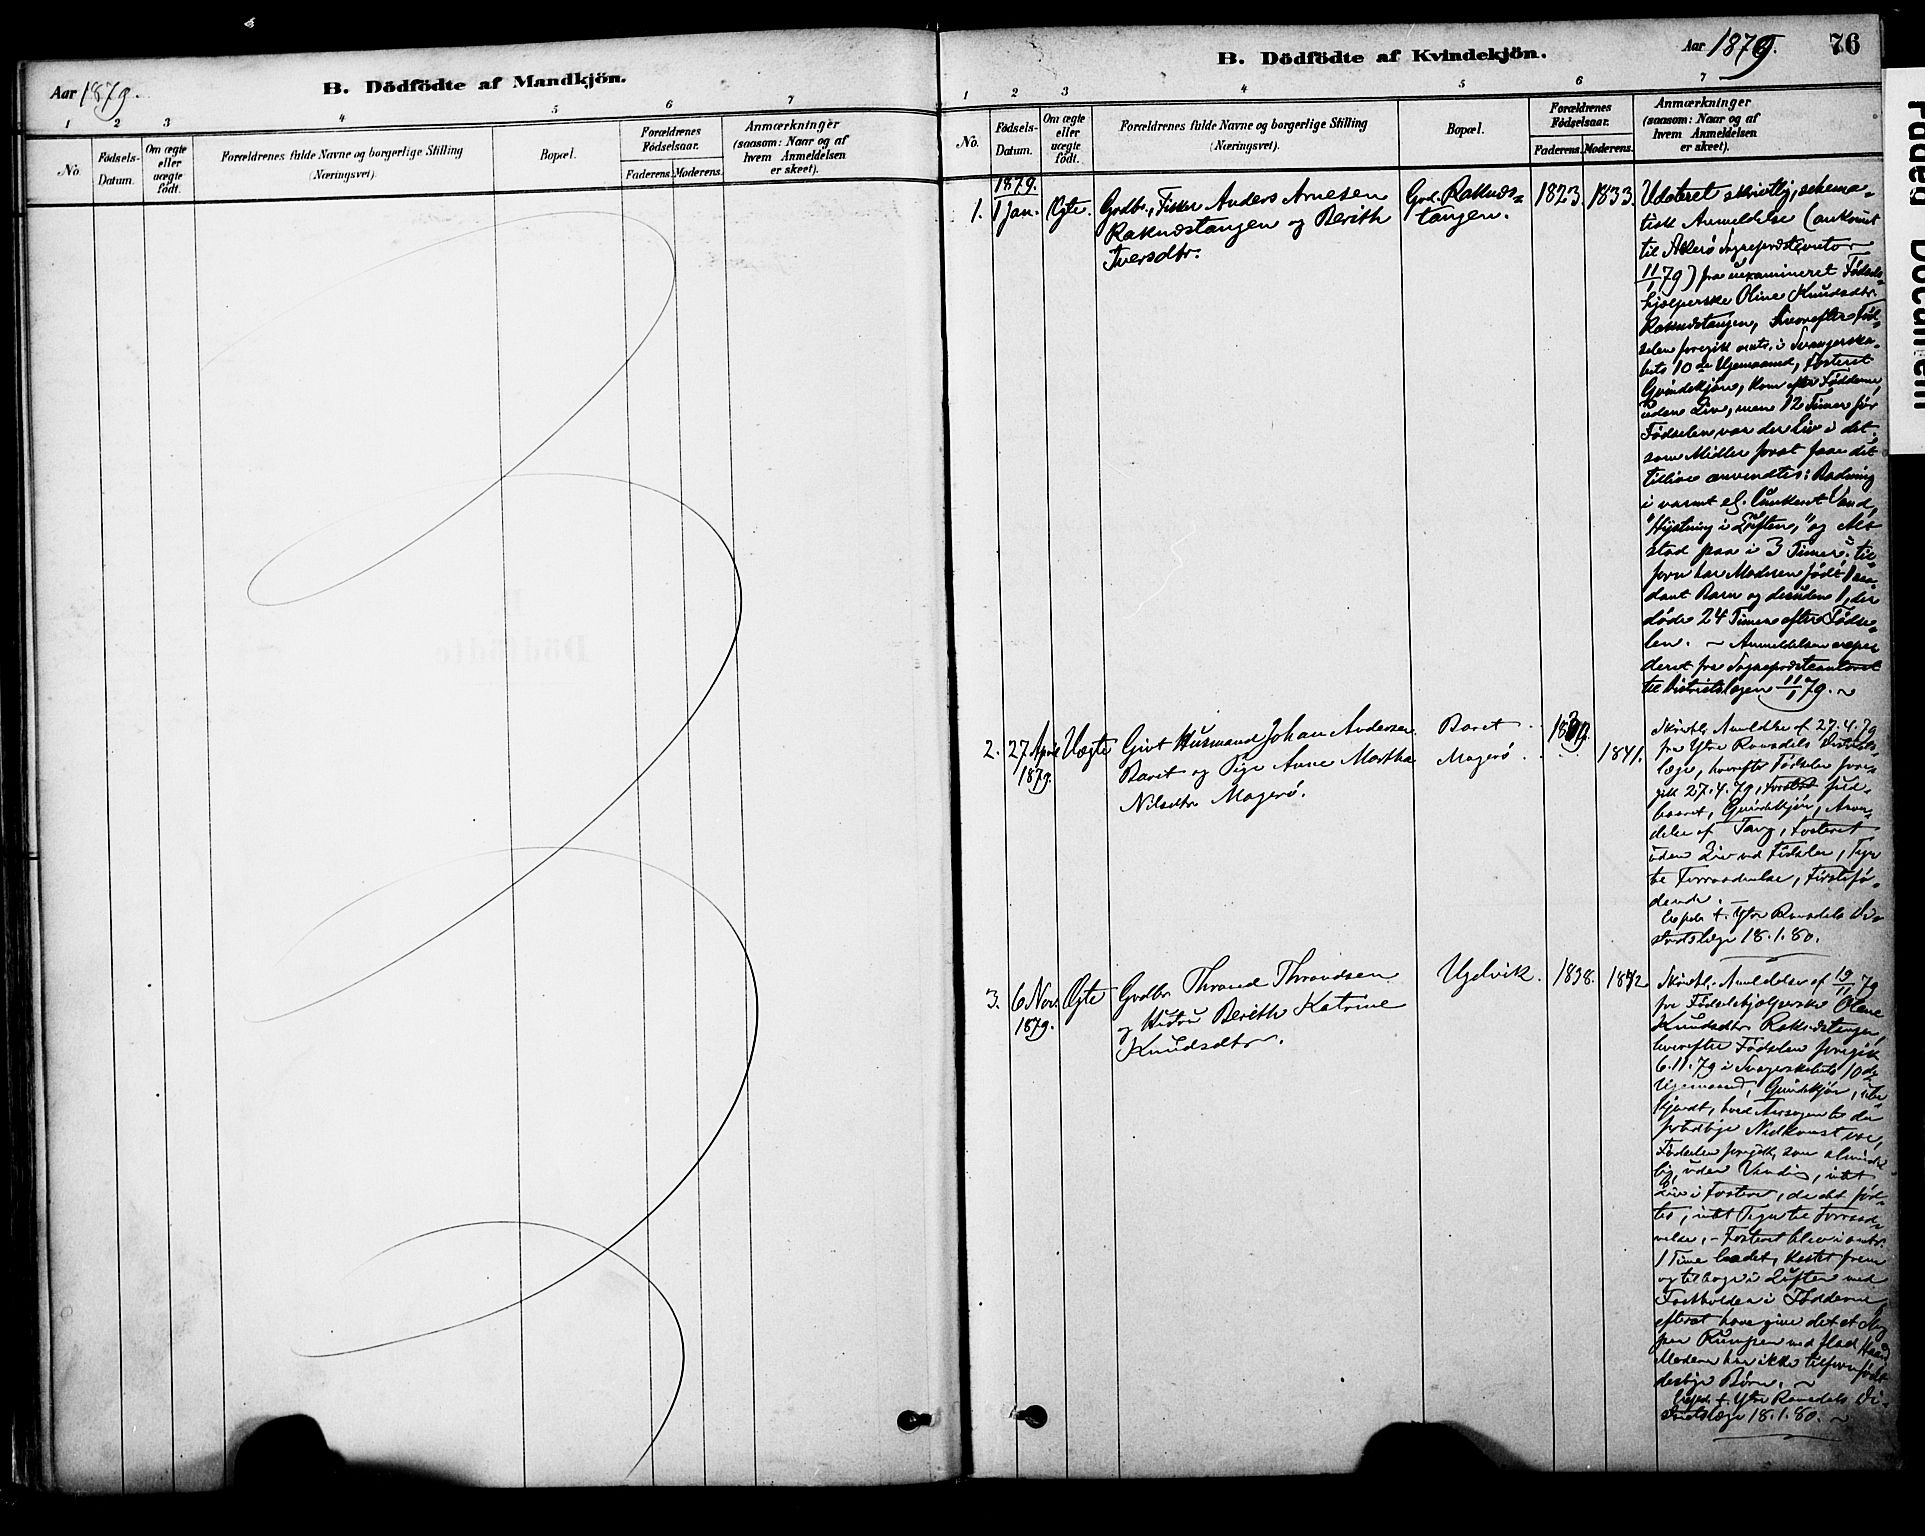 Aar 1879.
B. Dödfödte af Mandkjön.
1 2 3 4 5 6 7
No.
Födsels-
Datum.
Om ægte
eller
uægte
födt.
Forældrenes fulde Navne og borgerlige Stilling
(Næringsvei).
Bopæl.
Forældrenes
Födselsaar.
Faderens. Moderens.
Anmærkninger
(saasom: Naar og af
hvem Anmeldelsen
er skeet).
B. Dödfödte af Kvindekjön.
Aar 1879.
76
1 2 3 4 5 6 7
No.
Födsels-
Datum.
Om ægte
eller
uægte
födt.
Forældrenes fulde Navne og borgerlige Stilling
(Næringsvei).
Bopæl.
Forældrenes
Födselsaar.
Faderens. Moderens.
Anmærkninger
(saasom: Naar og af
hvem Anmeldelsen
er skeet).
1879.
1. 1 Jan. Ægte.
Gdbr., Fisker Anders Arnesen
Raknæstangen og Berith
Iversdtr.
Grd. Raknæs-
tangen.
1823. 1833.
Udateret skriftlig, schema-
tisk Anmeldelse (ankomt
til Akerø Sognepræstecontor
11/1 79) fra uexamineret Fødsels-
hjælperske Oline Knudsdtr
Raknæstangen, hvorefter Fød-
selen foregik omtr. i Svangerska-
bets 10de Ugemaaned, Fosteret
Qvindekjøn, kom efter Fødderne,
uden Liv, men 12 Timer før
Fødselen var der Liv i det.
som Midler forat faae det
tillive anvendtes: Badning
i varmt
Vand,
"Hystning i Luften," og
stod paa i 3 Timer; til-
forn har Moderen født 1 saa-
dant Barn og desuden 1, der
døde 24 Timer efter Fødse-
len. ~ Anmeldelsen expe-
deret fra Sognepræstecontoret
til Districtslægen 11/1 79. ~
2. 27 April
1879.
Uægte
Gift Husmand Johan Andersen
Baret og Pige Anne Martha
Nilsdtr Magerø.
Baret
Magerø.
1841.
Skriftl. Anmeldse af 27.4.79
fra Ytre Romsdals Districts-
læge, hvorefter Fødselen fore-
gik 27.4.79, Fosteret fuld-
baaret, Qvindekjøn,
delse af Tang, Fosteret
uden Liv ved Fødslen, Tegn
til Forraadnelse, Førstefø-
dende. ~
Exped. t. Ytre Romsdals Di-
strictslæge 18.1.80.
3. 6 Nov.
1879.
Ægte
Gdbr. Thrond Throndsen
og Hustru Berith Katrine
Knudsdtr.
Ugelvik.
1838. 1842.
Skriftl. Anmeldelse af 19/11 79
fra Fødselshjælperske Oline
Knudsdtr Raknæstangen,
hvorefter Fødslen foregik
6.11.79 i Svangerskabets 10de
Ugemaaned, Qvindekjøn, ube-
kjendt, hvad Aarsagen til den
Nedkomst var,
Fødselen foregik, som almind-
lig, uden Vending, intet
Liv i Fosteret, da det fød-
tes, intet Tegn til Forraad-
nelse, - Fosteret blev i omtr.
1 Time badet, kastet frem
og tilbage i Luften med
Fastholden i Fødderne,
efterat have givet det et Slag
paa Rumpen med flad Haand,
Moderen har ikke tilforn født
deslige Børn. ~
Exped. t. Ytre Romsdals Di-
strictslæge 18.1.80. ~
Faded Document